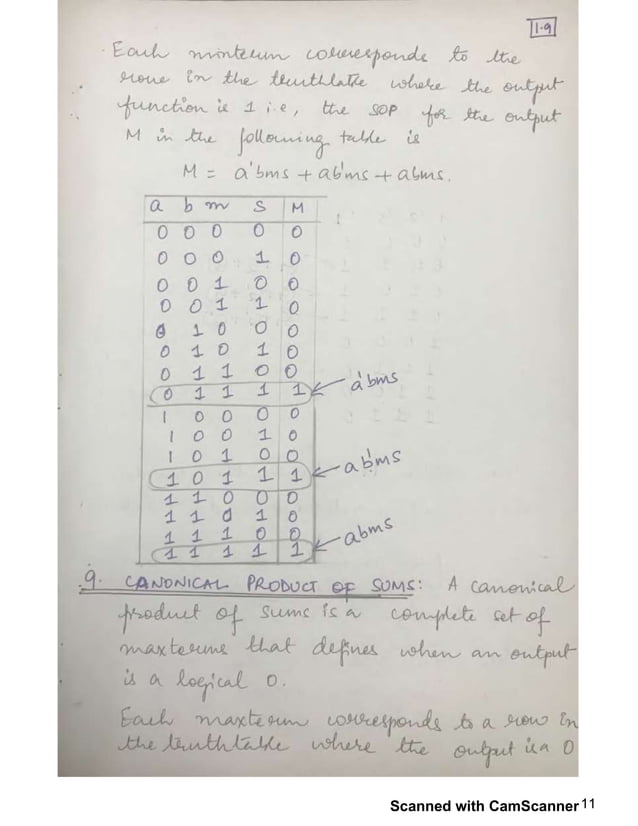 1.9
Each minterm corresponds to the
rows in the truthtable where the output
function is 1 i.e, the SOP for the output
M in the following table is
M = a'bms + ab'ms + abms.
a b m s M
0 0 0 0 0
0 0 0 1 0
0 0 1 0 0
0 0 1 1 0
0 1 0 0 0
0 1 0 1 0
0 1 1 0 0
0 1 1 1 1 a'bms
1 0 0 0 0
1 0 0 1 0
1 0 1 0 0
1 0 1 1 1 ab'ms
1 1 0 0 0
1 1 0 1 0
1 1 1 0 0
1 1 1 1 1 abms
9. CANONICAL PRODUCT OF SUMS: A canonical
product of sums is a complete set of
maxterms that defines when an output
is a logical 0.
Each maxterm corresponds to a row in
the truthtable where the output is a 0
Scanned with CamScanner 11